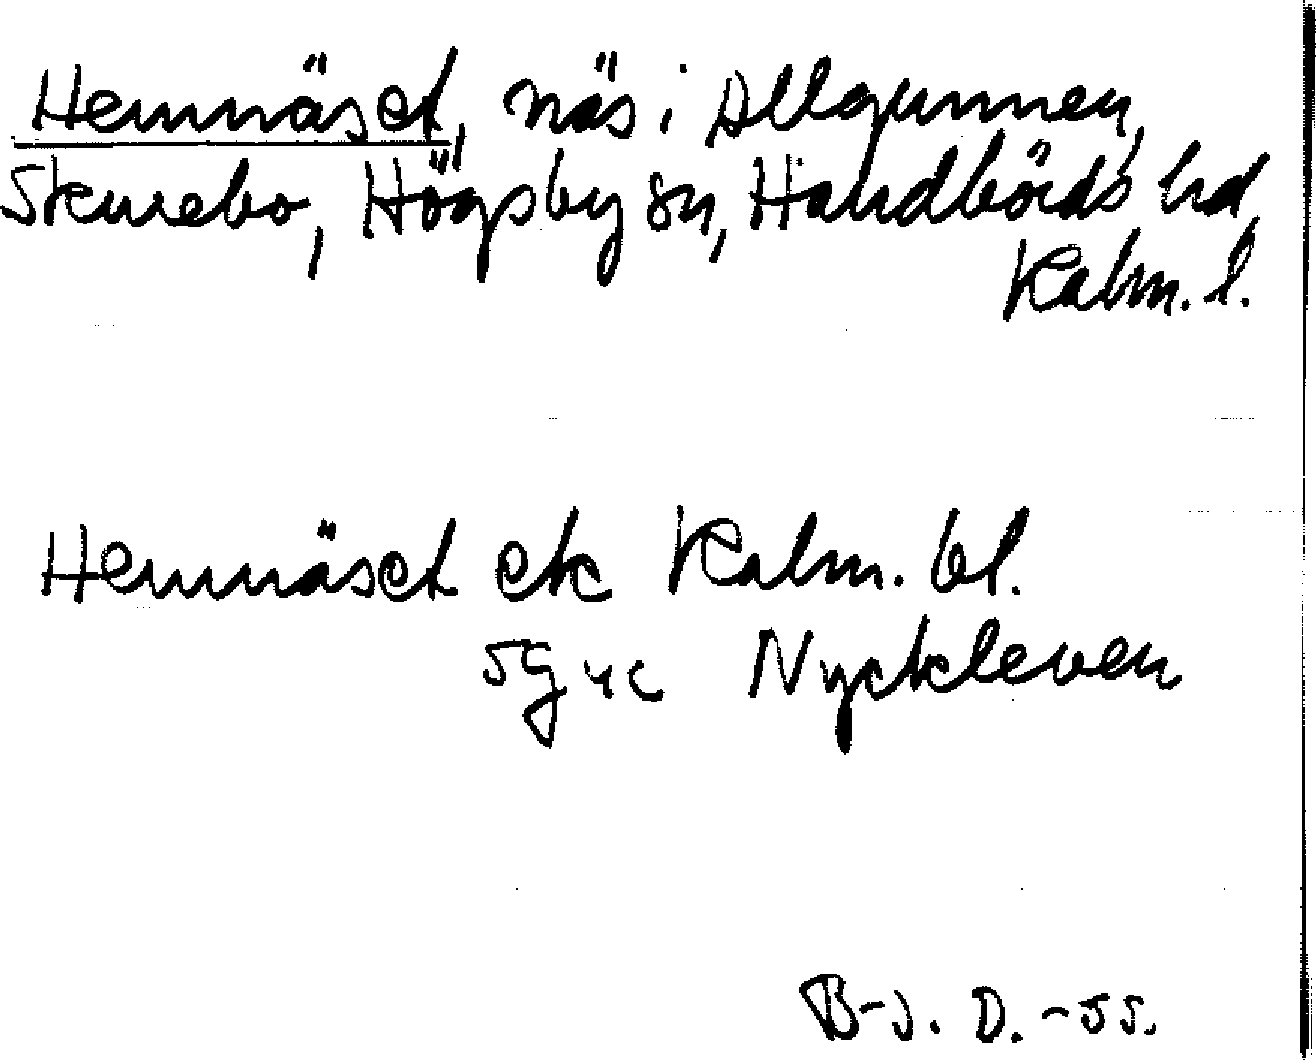 Hemnäset, näs i Allgunnen,
Skurebo, Högsby sn, Handbörds hd,
Kalm. l.
Hemnäset ek Kalm. bl.
5G 4c Nyckleven
B-J. D. -55.